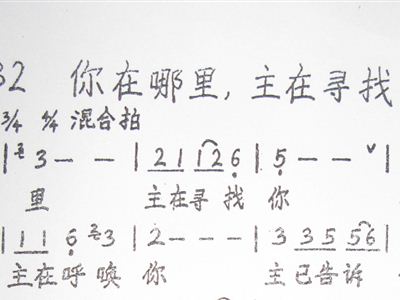 32 你在哪里,主在寻找
3/4 4/4 混合拍
| 3 - - | 2 1 1 2 6 | 5 - - ∨
里 主在寻找你
| 1 1 6 3 | 2 - - - | 3 3 5 5 6
主在呼唤你 主已告诉